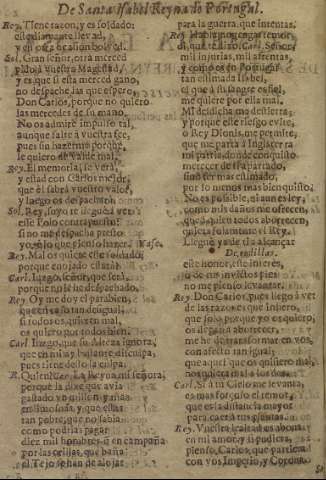 De Santa Isabel Reyna de Portugal.
Rey. Tiene razon, y es soldado:
este diamante llevad,
y en
Sol. Gran señor, otra merced
pido à vuestra Magestad,
y es que si esta merced gano,
no despache las que espero
Don Carlos, porque no quiero
las mercedes de su mano.
No os admire impulso tal,
aunque falte à vuestra fee,
pues sin hazerme porque,
le quiero de valde mal.
Rey. El memorial, se verà,
y estad con Carlos mejor,
que el sabrà vuestro valor,
y luego os despacharà.
Sol. Rey, suyo
este Polo
si no me despacha presto
yo sè lo que pienso hazer. Vase.
Rey. Mal os quiere este soldado,
porque enojado estarà.
Carl. Luego, señor, que serà,
porque no le he despachado.
Rey. Oy me doy el parabien,
que en caso tan desigual,
si todos os quieren mal,
os quiero por todos bien.
Carl. Luego, que su Alteza ignora,
que en mi ay bastante disculpa,
pues siente dello la culpa.
R. Quien? Car. La Reyna, mi señora,
porque la dixe que avia
gastado vn millon, y mas
en limosnas, y que estàs
tan pobre, que no sabia
como podràs pagar
diez mil hombres, que en campaña
por las orillas, que baña
el Tejo se han de alojar
para la guerra, que intentas.
Rey. Habla, no tengas temor,
di que te dixo. Carl. Señor,
mil injurias, mil afrentas,
y como es en Portugal
tan estimada Isabel,
el que à su sangre es fiel,
me quiere por ella mal.
Mi desdicha me destierra,
y porque este riesgo evite,
ò Rey Dionis, me permite,
que me parta à Inglaterra
mi patria, donde conquisto
merecer de ti apartado,
sino ser mas estimado,
por lo menos mas bien quisto.
No es posible, si aun es ley,
como mis daños me ofrecen,
que à quien todos aborrecen,
quiera solamente el Rey.
Llegue yo de ti à alcançar
De rodillas.
este honor, este interès,
ò de tus invictos pies
no me pienso levantar.
Rey. Don Carlos, pues llego à ver
de las razones que infiero,
que solo porque yo os quiero,
os llegan à aborrecer,
me he de transformar en vos,
con afecto tan igual,
que aquel que os quisiere mal,
nos quiera mal à los dos.
Carl. Si à tu Cielo me levanta,
es mas forçoso el temor,
que es la distancia mayor
para caer à tus plantas.
Rey. Vuestra lealtad es abono
en mi amor, y si pudiera,
pienso, Carlos, que partiera
con vos Imperio, y Corona.